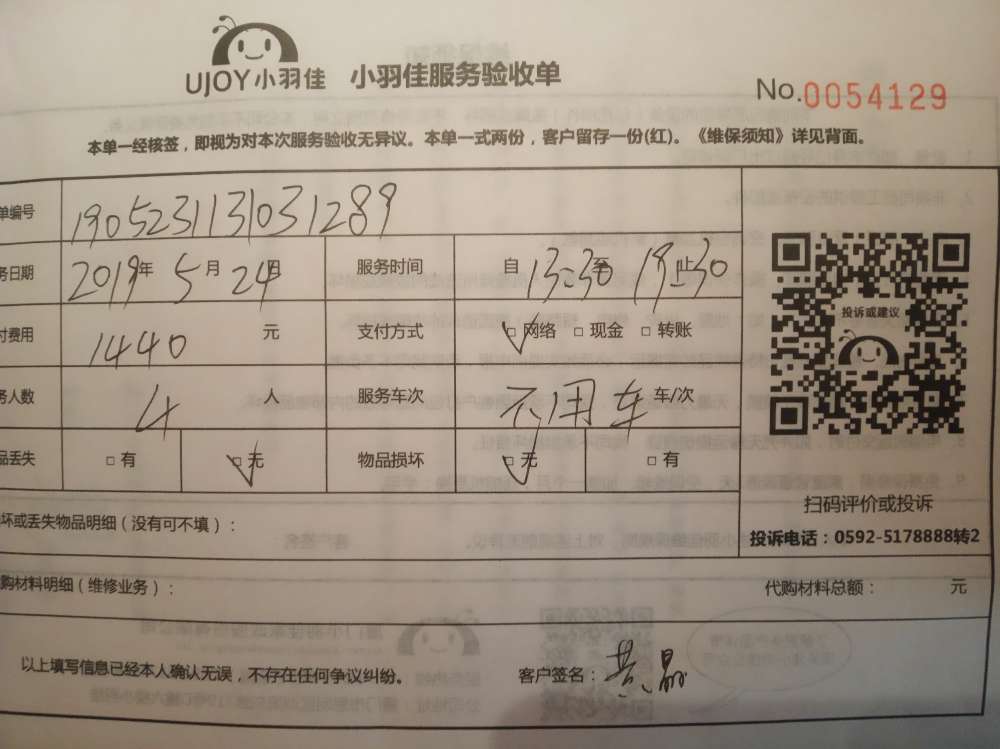 UJOY小羽佳 小羽佳服务验收单
No.0054129
本单一经核签，即视为对本次服务验收无异议。本单一式两份，客户留存一份(红)。《维保须知》详见背面。
单编号 190523113031289
务日期 2019年 5月 24日 服务时间 自 13:30 至 19 止 30
付费用 1440 元 支付方式 □网络 □现金 □转账
务人数 4 人 服务车次 不用车 车/次
品丢失 □有 □无 物品损坏 □无 □有
投诉或建议
扫码评价或投诉
坏或丢失物品明细（没有可不填）：
投诉电话：0592-5178888转2
购材料明细（维修业务）： 代购材料总额： 元
以上填写信息已经本人确认无误，不存在任何争议纠纷。 客户签名：